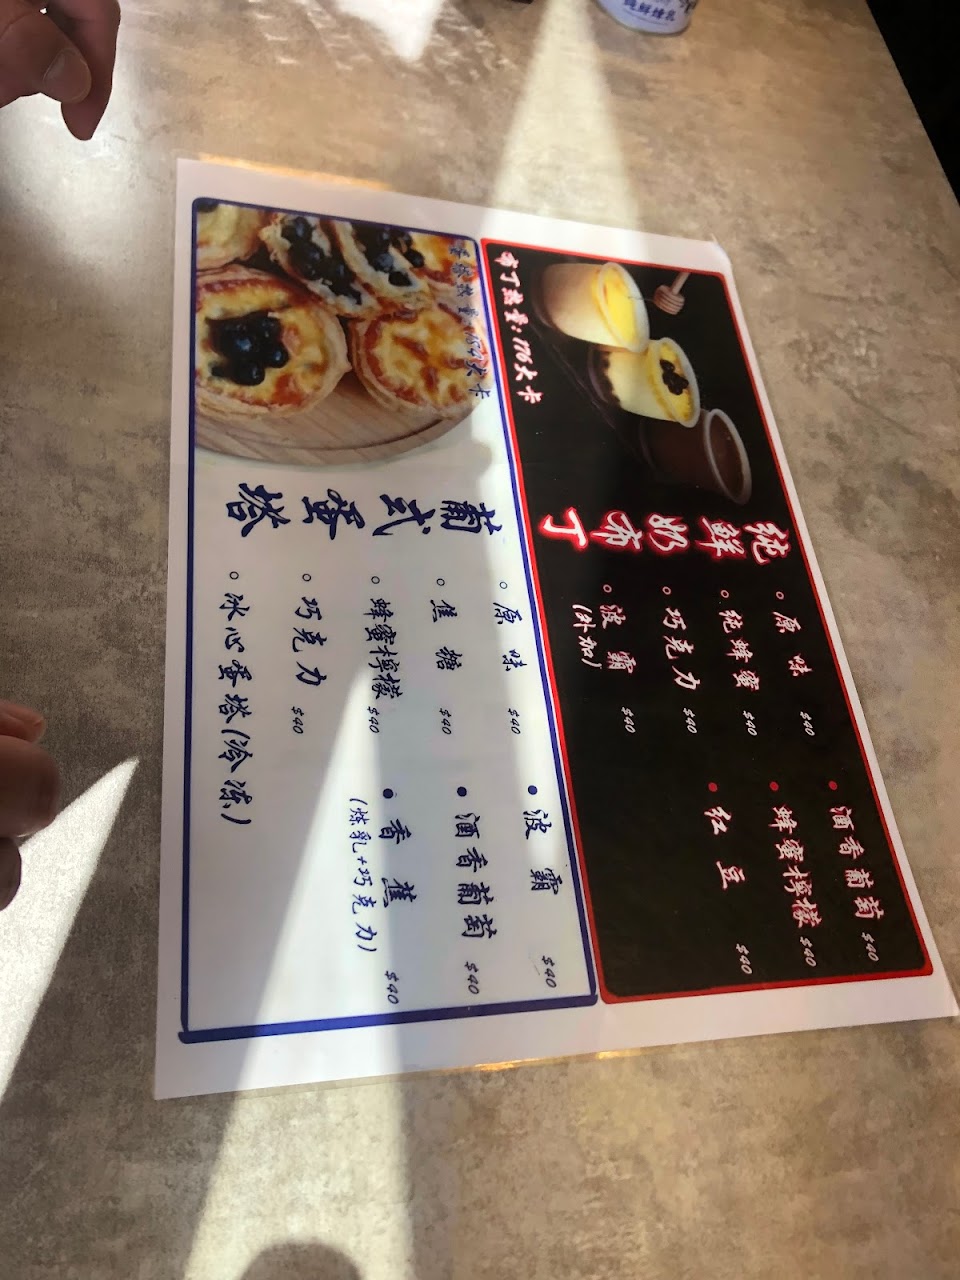 純鮮奶布丁
布丁熱量:176大卡
○原味 $40 ●酒香葡萄 $40
○純蜂蜜 $40 ●蜂蜜檸檬 $40
○巧克力 $40 ●紅豆 $40
○波霸 $40
(外加)
葡式蛋塔
熱量: 大卡
○原味 $40 ●波霸 $40
○焦糖 $40 ●酒香葡萄 $40
○蜂蜜檸檬 $40 ●香蕉 $40
(煉乳+巧克力)
○巧克力 $40
○冰心蛋塔(冷凍)